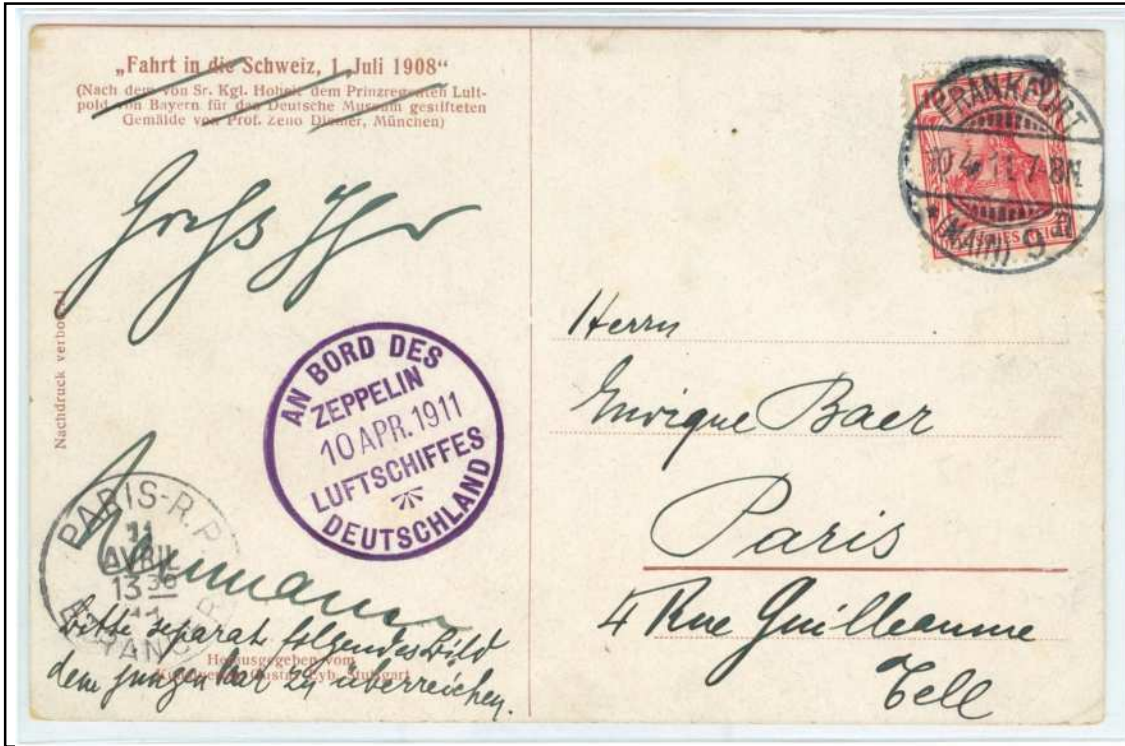 „Fahrt in die Schweiz, 1. Juli 1908“
(Nach dem von Sr. Kgl. Hoheit dem Prinzregenten Luit-
pold von Bayern für das Deutsche Museum gestifteten
Gemälde von Prof. Zeno Diemer, München)
Gruß Ihr
Nachdruck verboten!
AN BORD DES
ZEPPELIN
10 APR. 1911
LUFTSCHIFFES
DEUTSCHLAND
PARIS-R.P.
11
AVRIL
13 30
11
ETRANGER
bitte separat folgendes Bild
dem jungen zu überreichen.
Herausgegeben vom
Stuttgart
FRANKFURT
10.4.11.7-8N.
* (MAIN) 9
Herrn
Enrique Baer
Paris
4 Rue Guilleaume
Tell